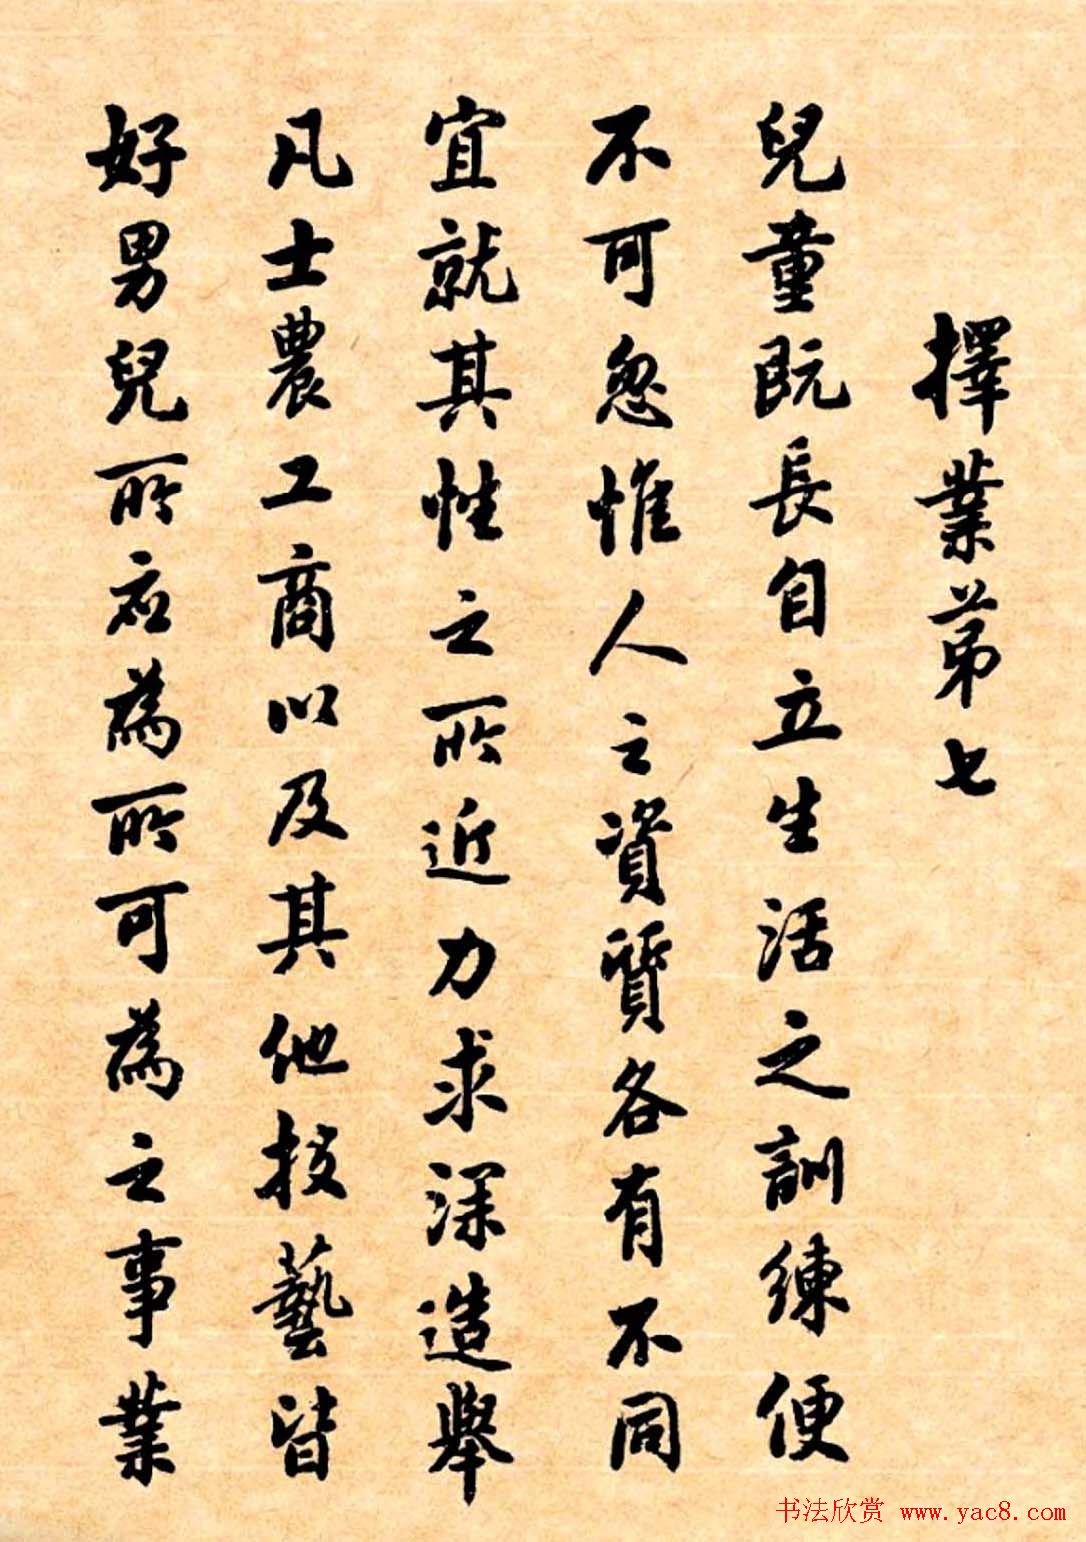 擇業第七
兒童既長自立生活之訓練便
不可忽惟人之資質各有不同
宜就其性之所近力求深造舉
凡士農工商以及其他技藝皆
好男兒所应為所可為之事業
书法欣赏 www.yac8.com